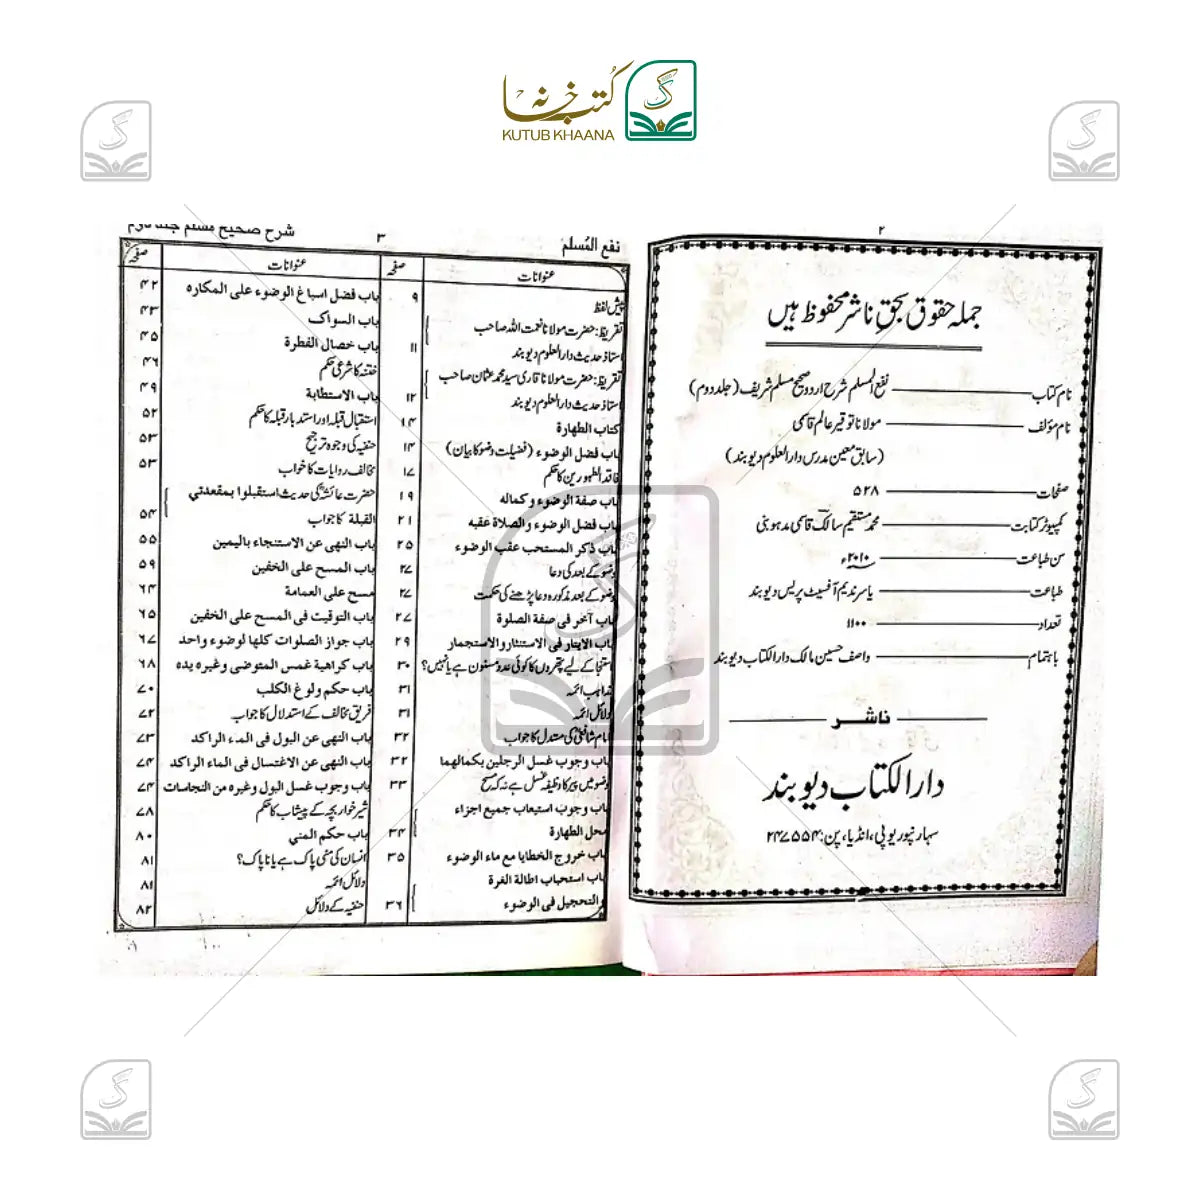 کتب خانہ
KUTUB KHAANA
۲
جملہ حقوق بحقِ ناشر محفوظ ہیں
نام کتاب نفع المسلم شرح اردو صحیح مسلم شریف (جلد دوم)
نام مؤلف مولانا توقیر عالم قاسمی
(سابق معین مدرس دار العلوم دیوبند)
صفحات ۵۲۸
کمپیوٹر کتابت محمد مستقیم سالک قاسمی مدہوبنی
سن طباعت ۲۰۱۰ء
طباعت یاسر ندیم آفسیٹ پریس دیوبند
تعداد ۱۱۰۰
باہتمام واصف حسین مالک دار الکتاب دیوبند
ناشر
دار الکتاب دیوبند
سہارنپور یوپی، انڈیا، پن: ۲۴۷۵۵۴
نفع المُسلم ۳ شرح صحیح مسلم جلد دوم
عنوانات صفحہ
پیش لفظ ۹
تقریظ: حضرت مولانا نعمت اللہ صاحب
استاذ حدیث دار العلوم دیوبند ۱۱
تقریظ: حضرت مولانا قاری سید محمد عثمان صاحب
استاذ حدیث دار العلوم دیوبند ۱۲
کتاب الطهارة ۱۴
باب فضل الوضوء (فضیلت وضو کا بیان) ۱۴
فاقد الطہورین کا حکم ۱۷
باب صفة الوضوء و کماله ۱۹
باب فضل الوضوء والصلاة عقبه ۲۱
باب ذکر المستحب عقب الوضوء ۲۵
وضو کے بعد کی دعا ۲۷
وضو کے بعد مذکورہ دعا پڑھنے کی حکمت ۲۷
باب آخر فی صفة الصلوة ۲۷
باب الایتار فی الاستنثار والاستجمار ۲۹
استنجا کے لیے پتھروں کا کوئی عدد مسنون ہے یا نہیں؟ ۳۰
مذاہب ائمہ ۳۱
دلائل ائمہ ۳۱
امام شافعیؒ کی مستدل کا جواب ۳۲
باب وجوب غسل الرجلین بکمالهما ۳۲
وضو میں پیر کا وظیفہ غسل ہے نہ کہ مسح ۳۳
باب وجوب استیعاب جمیع اجزاء
محل الطهارة ۳۴
باب خروج الخطایا مع ماء الوضوء ۳۵
باب استحباب اطالة الغرة
والتحجیل فی الوضوء ۳۶
عنوانات صفحہ
باب فضل اسباغ الوضوء علی المکاره ۴۲
باب السواک ۴۳
باب خصال الفطرة ۴۵
ختنہ کا شرعی حکم ۴۶
باب الاستطابة ۴۹
استقبال قبلہ اور استدبار قبلہ کا حکم ۵۲
حنفیہ کی وجوہ ترجیح ۵۳
مخالف روایات کا جواب ۵۳
حضرت عائشہؓ کی حدیث استقبلوا بمقعدتي
القبلة کا جواب ۵۴
باب النهی عن الاستنجاء بالیمین ۵۵
باب المسح علی الخفین ۵۹
مسح علی العمامة ۶۴
باب التوقیت فی المسح علی الخفین ۶۵
باب جواز الصلوات کلها لوضوء واحد ۶۷
باب کراهیة غمس المتوضی وغیره یده ۶۸
باب حکم ولوغ الکلب ۷۰
فریق مخالف کے استدلال کا جواب ۷۲
باب النهی عن البول فی الماء الراکد ۷۳
باب النهی عن الاغتسال فی الماء الراکد ۷۴
باب وجوب غسل البول وغیره من النجاسات ۷۴
شیر خوار بچہ کے پیشاب کا حکم ۷۸
باب حکم المنی ۸۰
انسان کی منی پاک ہے یا ناپاک؟ ۸۱
دلائل ائمہ ۸۱
حنفیہ کے دلائل ۸۲